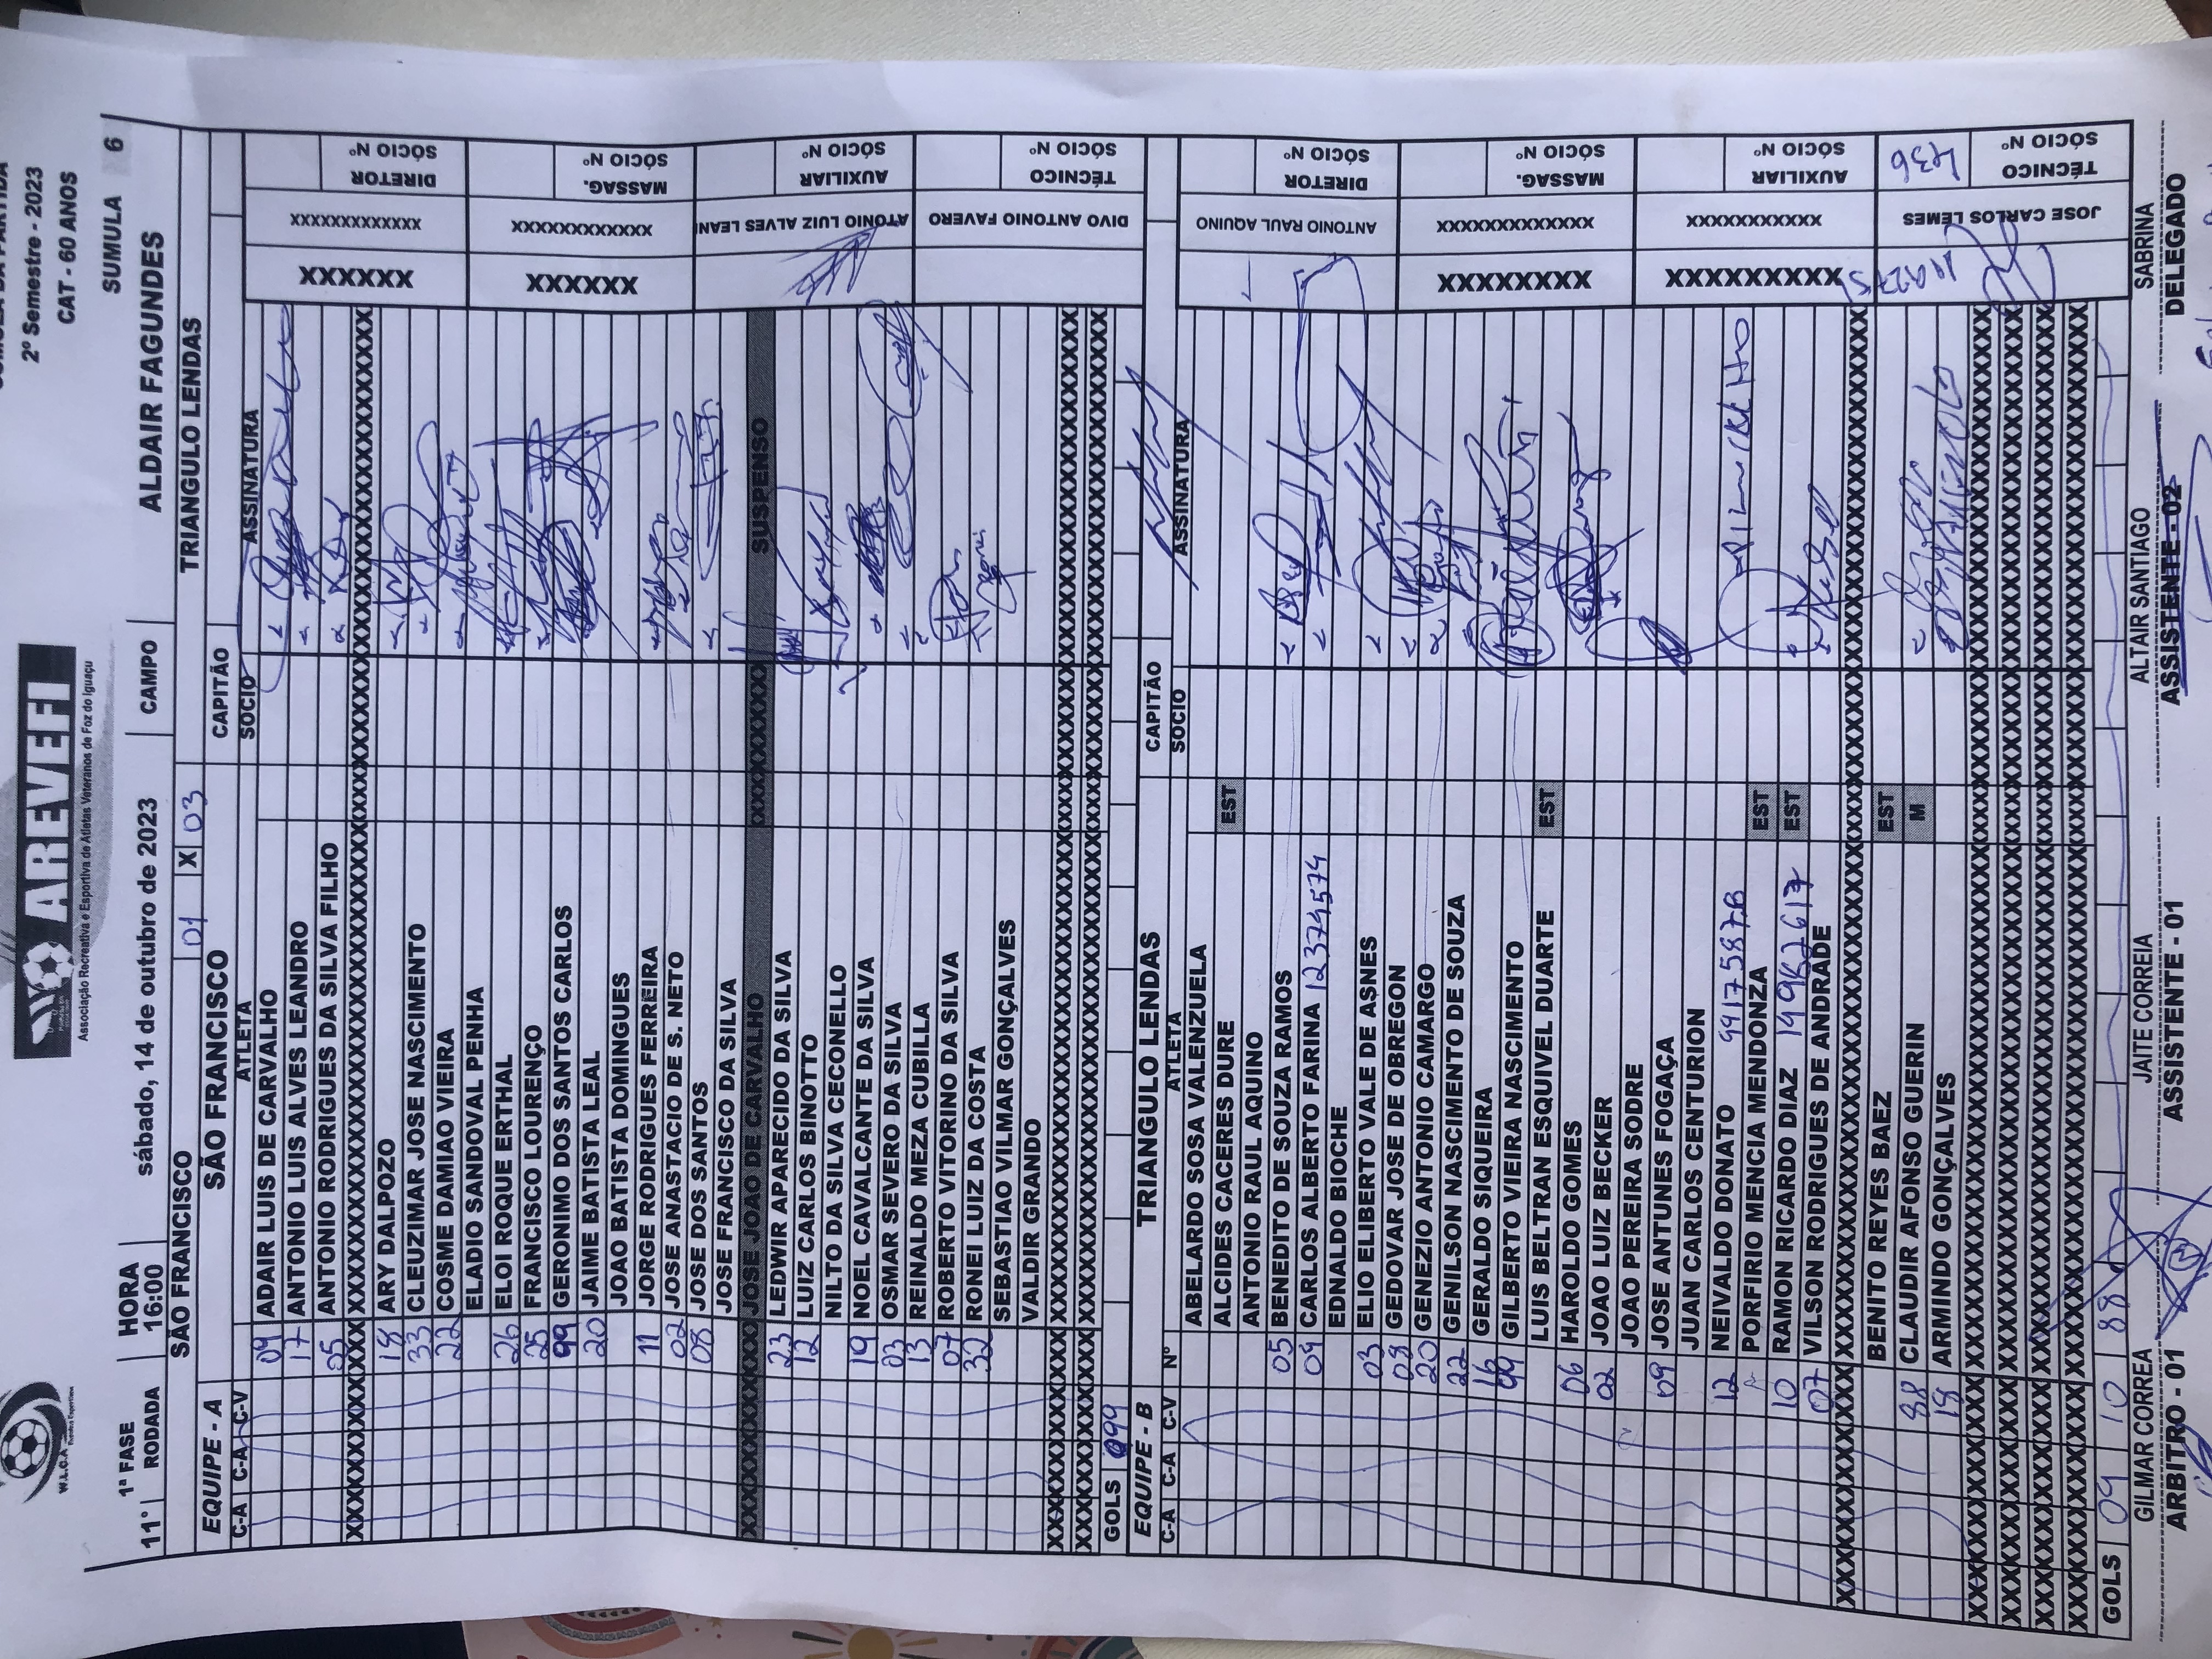 2º Semestre - 2023
CAT - 60 ANOS
W.L.O.A
AREVEFI
Associação Recreativa e Esportiva de Atletas Veteranos de Foz do Iguaçu
SUMULA 6
11ª RODADA 1ª FASE HORA 16:00 sábado, 14 de outubro de 2023 CAMPO ALDAIR FAGUNDES
SÃO FRANCISCO 01 X 03 TRIANGULO LENDAS
EQUIPE - A SÃO FRANCISCO CAPITÃO
C-A C-A C-V ATLETA SOCIO ASSINATURA
09 ADAIR LUIS DE CARVALHO
17 ANTONIO LUIS ALVES LEANDRO
55 ANTONIO RODRIGUES DA SILVA FILHO
18 ARY DALPOZO
33 CLEUZIMAR JOSE NASCIMENTO
22 COSME DAMIAO VIEIRA
ELADIO SANDOVAL PENHA
26 ELOI ROQUE ERTHAL
25 FRANCISCO LOURENÇO
99 GERONIMO DOS SANTOS CARLOS
20 JAIME BATISTA LEAL
JOAO BATISTA DOMINGUES
11 JORGE RODRIGUES FERREIRA
02 JOSE ANASTACIO DE S. NETO
08 JOSE DOS SANTOS
JOSE FRANCISCO DA SILVA
XXXXXXXX JOSE JOAO DE CARVALHO XXXXXXXXX SUSPENSO
23 LEDWIR APARECIDO DA SILVA
12 LUIZ CARLOS BINOTTO
NILTO DA SILVA CECONELLO
19 NOEL CAVALCANTE DA SILVA
03 OSMAR SEVERO DA SILVA
13 REINALDO MEZA CUBILLA
07 ROBERTO VITORINO DA SILVA
32 RONEI LUIZ DA COSTA
SEBASTIAO VILMAR GONÇALVES
VALDIR GRANDO
GOLS 99
XXXXXX XXXXXXXXXXXXX DIRETOR SÓCIO Nº
XXXXXX XXXXXXXXXXXXX MASSAG. SÓCIO Nº
ATONIO LUIZ ALVES LEAN AUXILIAR SÓCIO Nº
DIVO ANTONIO FAVERO TÉCNICO SÓCIO Nº
EQUIPE - B TRIANGULO LENDAS CAPITÃO
C-A C-A C-V Nº ATLETA SOCIO ASSINATURA
ABELARDO SOSA VALENZUELA
ALCIDES CACERES DURE EST
ANTONIO RAUL AQUINO
05 BENEDITO DE SOUZA RAMOS
04 CARLOS ALBERTO FARINA 12374574
EDNALDO BIOCHE
03 ELIO ELIBERTO VALE DE ASNES
08 GEDOVAR JOSE DE OBREGON
20 GENEZIO ANTONIO CAMARGO
22 GENILSON NASCIMENTO DE SOUZA
16 GERALDO SIQUEIRA
GILBERTO VIEIRA NASCIMENTO
LUIS BELTRAN ESQUIVEL DUARTE EST
06 HAROLDO GOMES
02 JOAO LUIZ BECKER
JOAO PEREIRA SODRE
09 JOSE ANTUNES FOGAÇA
JUAN CARLOS CENTURION
12 NEIVALDO DONATO
PORFIRIO MENCIA MENDONZA EST
10 RAMON RICARDO DIAZ EST
07 VILSON RODRIGUES DE ANDRADE
BENITO REYES BAEZ EST
88 CLAUDIR AFONSO GUERIN M
18 ARMINDO GONÇALVES
GOLS 09 10 88
ANTONIO RAUL AQUINO DIRETOR SÓCIO Nº
XXXXXXXXX XXXXXXXXXXXXX MASSAG. SÓCIO Nº
XXXXXXXXXX XXXXXXXXXXXX AUXILIAR SÓCIO Nº
JOSE CARLOS LEMES TÉCNICO SÓCIO Nº 436
GILMAR CORREA JAITE CORREIA ALTAIR SANTIAGO SABRINA
ARBITRO - 01 ASSISTENTE - 01 ASSISTENTE - 02 DELEGADO